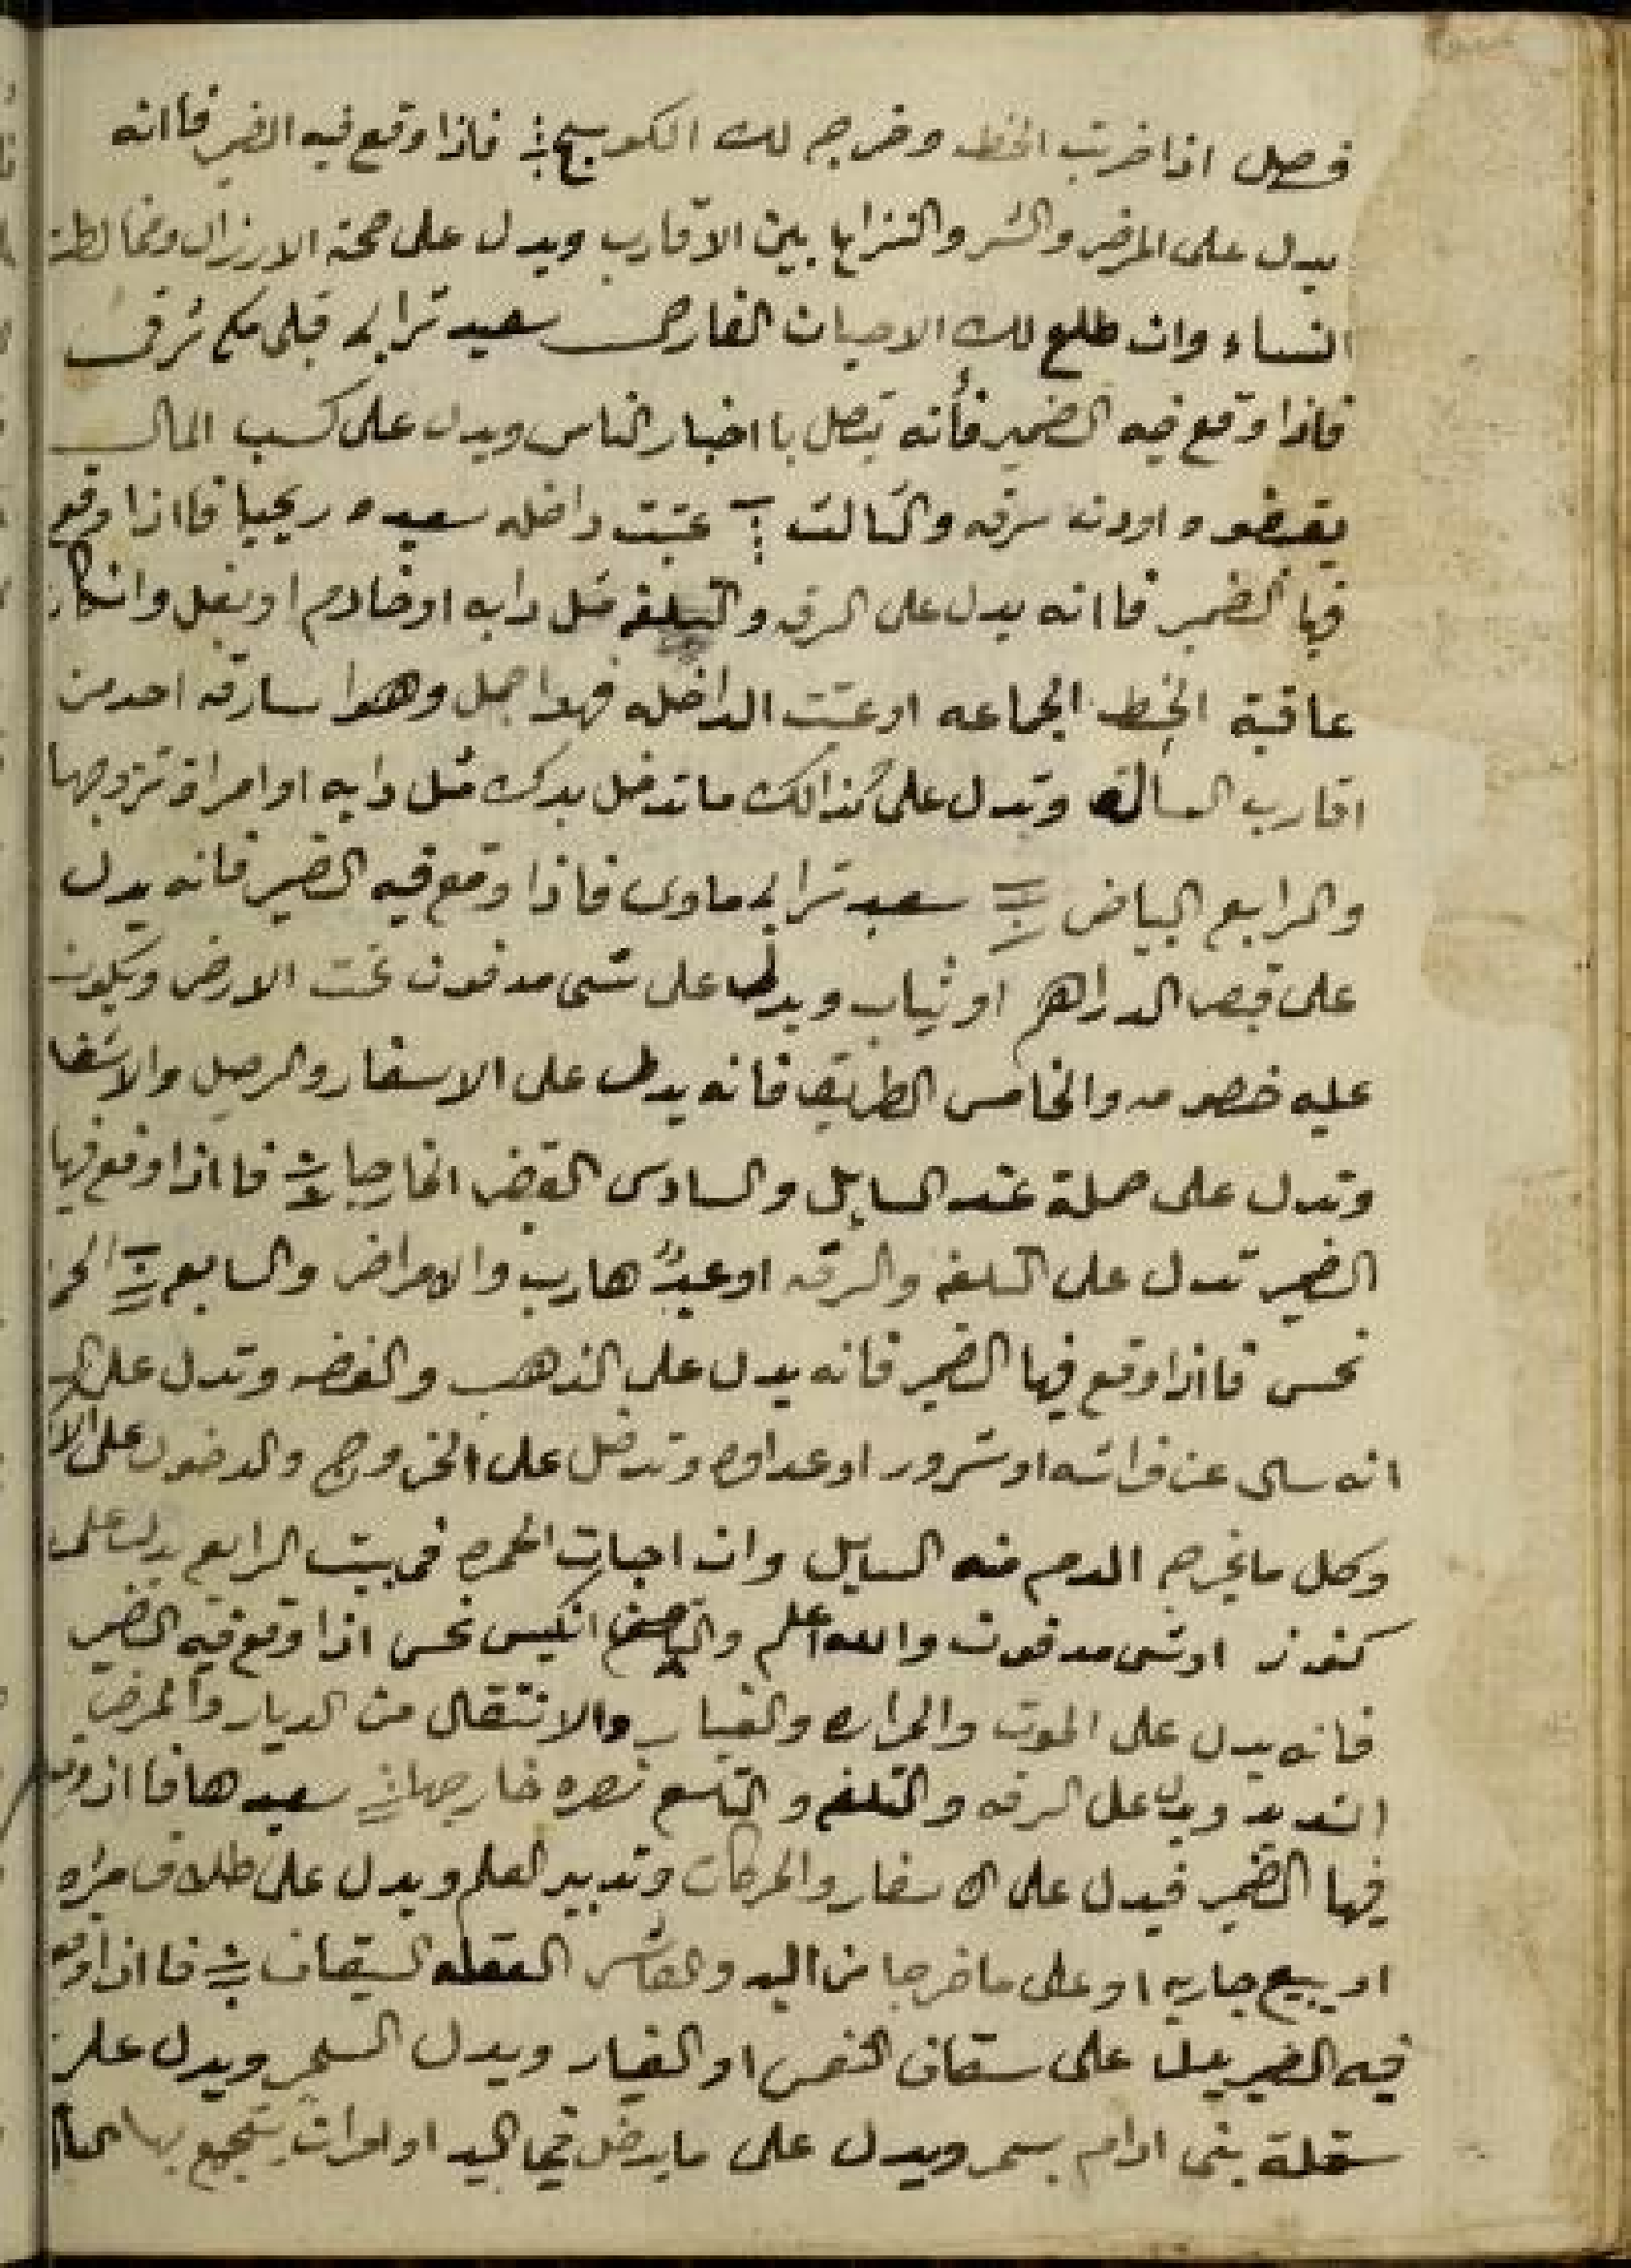 فصل اذا ضربت الخط وخرج لك الكوسج فاذا وقع فيه الضمير فاانه
يدل على المرض والشر والنزاع بين الاقارب ويدل على صحة الارزال ومخالطة
النساء وان طلع لك الاحيان الخارج سعيد ترابى قبلى حكم شرقى
فاذا وقع فيه الضمير فأنه يتصل با اخبار الناس ويدل على كسب المال
يقبضو واودت سرقه والثالث عتبت داخله سعيده ريحيا فااذا وقع
فيها الضمير فاانه يدل على السرقه والتلفه مثل دابه او خادم او بغل وانكان
عاقبة الخط الجماعه او عتبت الداخله فهوا جمل وهوا سارقه احد من
اقارب السألة وتدل على كذالك ما تدخل يدك مثل دابه او امراة تزوجها
والرابع البياض سعيد ترابى ماوى فاذا وقع فيه الضمير فانه يدل
على قبض الدراهم او ثياب ويدل على شى مدفون تحت الارض ويكون
عليه خصومه والخامس الطريق فانه يدل على الاسفار والرحيل والاشفا
وتدل على حملة عند السايل والسادس القبض الخارجا فااذا وقع فيها
الضمير تدل على التلفه والسرقه او عبدٌ هارب والامراض والسابع الحمر
نحس فااذا وقع فيها الضمير فانه يدل على الذهب والفضه وتدل على
انه سالى عن فراشه او شرور او عداوه وتدخل على الخروج والدخول على الا
وكل ما يخرج الدم منه السايل وان اجات الحمره فى بيت الرابع يدل على
كنوز او شى مدفون والله اعلم والثامن انكيس نحس اذا وقع فيه الضمير
فانه يدل على الموت والمراره والغيار والانتقال من الديار والمرض
الشديد ويدل على السرقه والتلفه والتاسع نصره خارجها سعيدها فااذا وقع
فيها الضمير فيدل على الاسفار والحركات وتدبير العلم ويدل على طلاق مراه
او بيع جاريه او على ما خرجا من اليد والعاشر العقله السقاف فااذا وقع
فيه الضمير يدل على سقاف النفس او الغيار ويدل السحر ويدل على
سقلة بنى ادام بسحر ويدل على ما يدخل فى اليد او امرات يتجمع بها